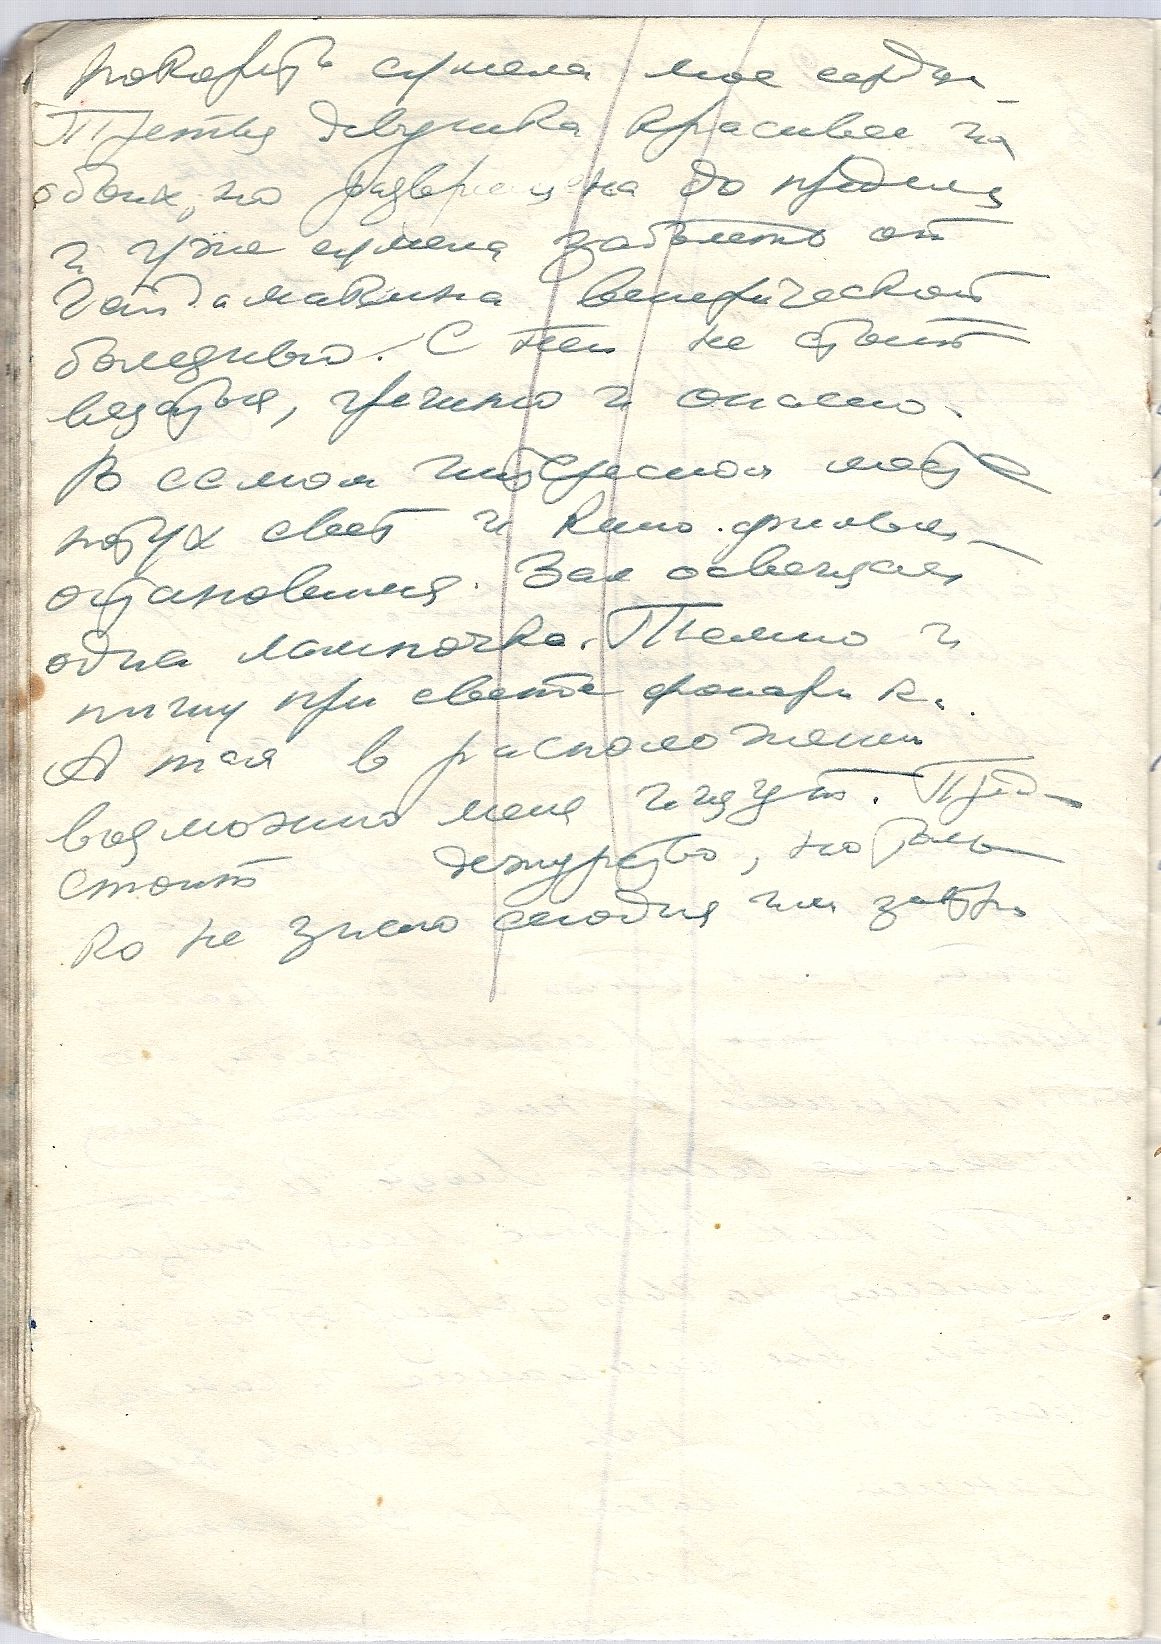 покорить сумела мое сердце.
Третья девушка красивее их
обоих, но развращена до предела
и уже сумела заболеть от
Гайдамакина венерической
болезнью. С ней не стоит
взяться, грешно и опасно.
В самом интересном месте
потух свет и кино-фильм
остановился. Зал освещает
одна лампочка. Темно и
пишу при свете фонарика.
А там в расположении
возможно меня ищут. Пред-
стоит дежурство, но толь-
ко не знаю сегодня или завтра